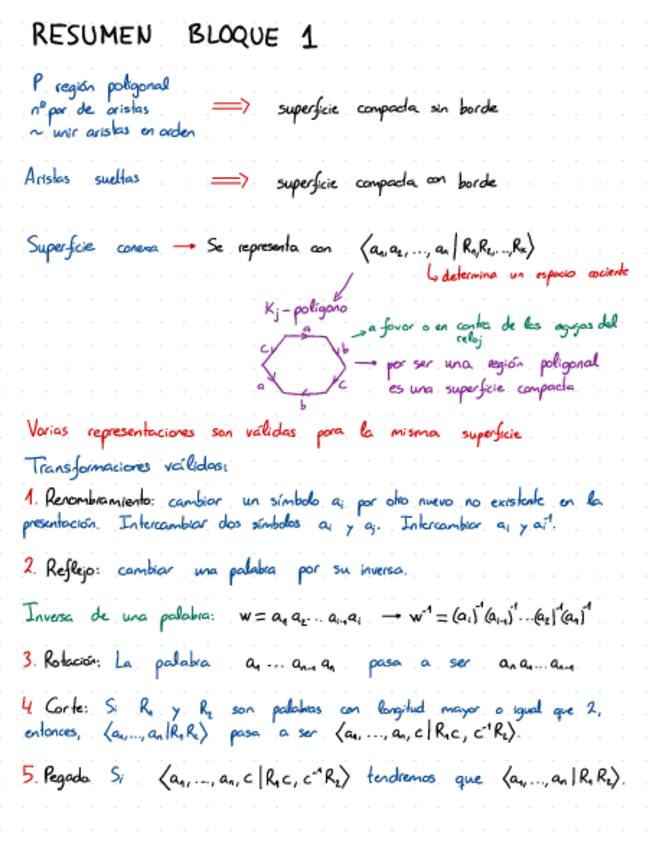 RESUMEN BLOQUE 1
P región poligonal
nº par de aristas ⟹ superficie compacta sin borde
~ unir aristas en orden
Aristas sueltas ⟹ superficie compacta con borde
Superficie conexa → Se representa con ⟨a₁,a₂,...,aₙ | R₁,R₂,...,Rₖ⟩
↳ determina un espacio cociente
Kj-polígono
a
→ a favor o en contra de las agujas del
reloj
c b
→ por ser una región poligonal
a c
es una superficie compacta
b
Varias representaciones son válidas para la misma superficie
Transformaciones válidas:
1. Renombramiento: cambiar un símbolo aᵢ por otro nuevo no existente en la
presentación. Intercambiar dos símbolos aᵢ y aⱼ. Intercambiar aᵢ y aᵢ⁻¹.
2. Reflejo: cambiar una palabra por su inversa.
Inversa de una palabra: w = a₁ a₂ ... aᵢ₋₁ aᵢ → w⁻¹ = (aᵢ)⁻¹(aᵢ₋₁)⁻¹...(a₂)⁻¹(a₁)⁻¹
3. Rotación: La palabra a₁ ... aₙ₋₁ aₙ pasa a ser aₙ a₁ ... aₙ₋₁
4 Corte: Si R₁ y R₂ son palabras con longitud mayor o igual que 2,
entonces, ⟨a₁,...,aₙ|R₁R₂⟩ pasa a ser ⟨a₁,...,aₙ,c|R₁c, c⁻¹R₂⟩.
5. Pegado Si ⟨a₁,...,aₙ,c|R₁c, c⁻¹R₂⟩ tendremos que ⟨a₁,...,aₙ|R₁R₂⟩.